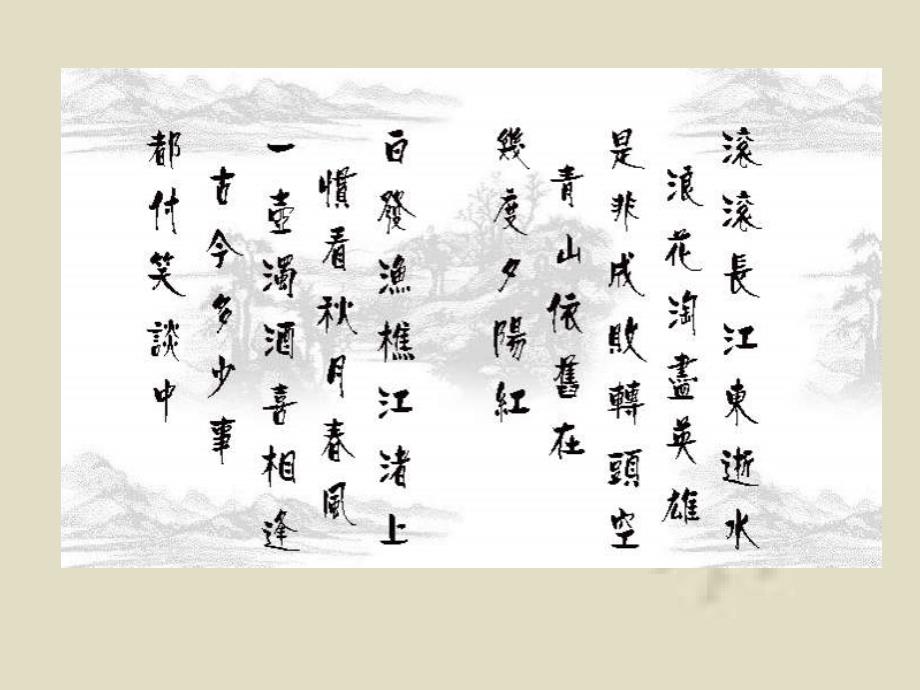 滾滾長江東逝水
浪花淘盡英雄
是非成敗轉頭空
青山依舊在
幾度夕陽紅
白發漁樵江渚上
慣看秋月春風
一壺濁酒喜相逢
古今多少事
都付笑談中